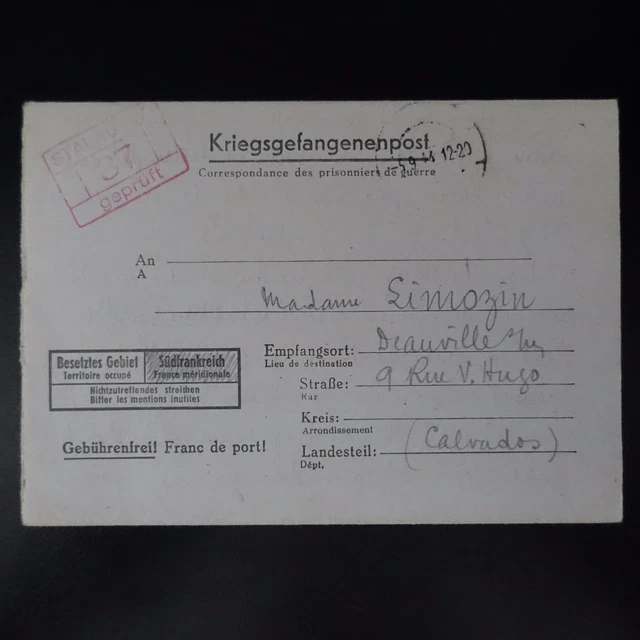 STALAG
37
geprüft
Kriegsgefangenenpost
9.44 12-20
Correspondance des prisonniers de guerre
An
A
Madame Limozin
Empfangsort: Deauville
Lieu de destination
Straße: 9 Rue V. Hugo
Rue
Kreis:
Arrondissement
Landesteil: (Calvados)
Dépt.
Besetztes Gebiet
Territoire occupé
Südfrankreich
France méridionale
Nichtzutreffendes streichen
Biffer les mentions inutiles
Gebührenfrei! Franc de port!